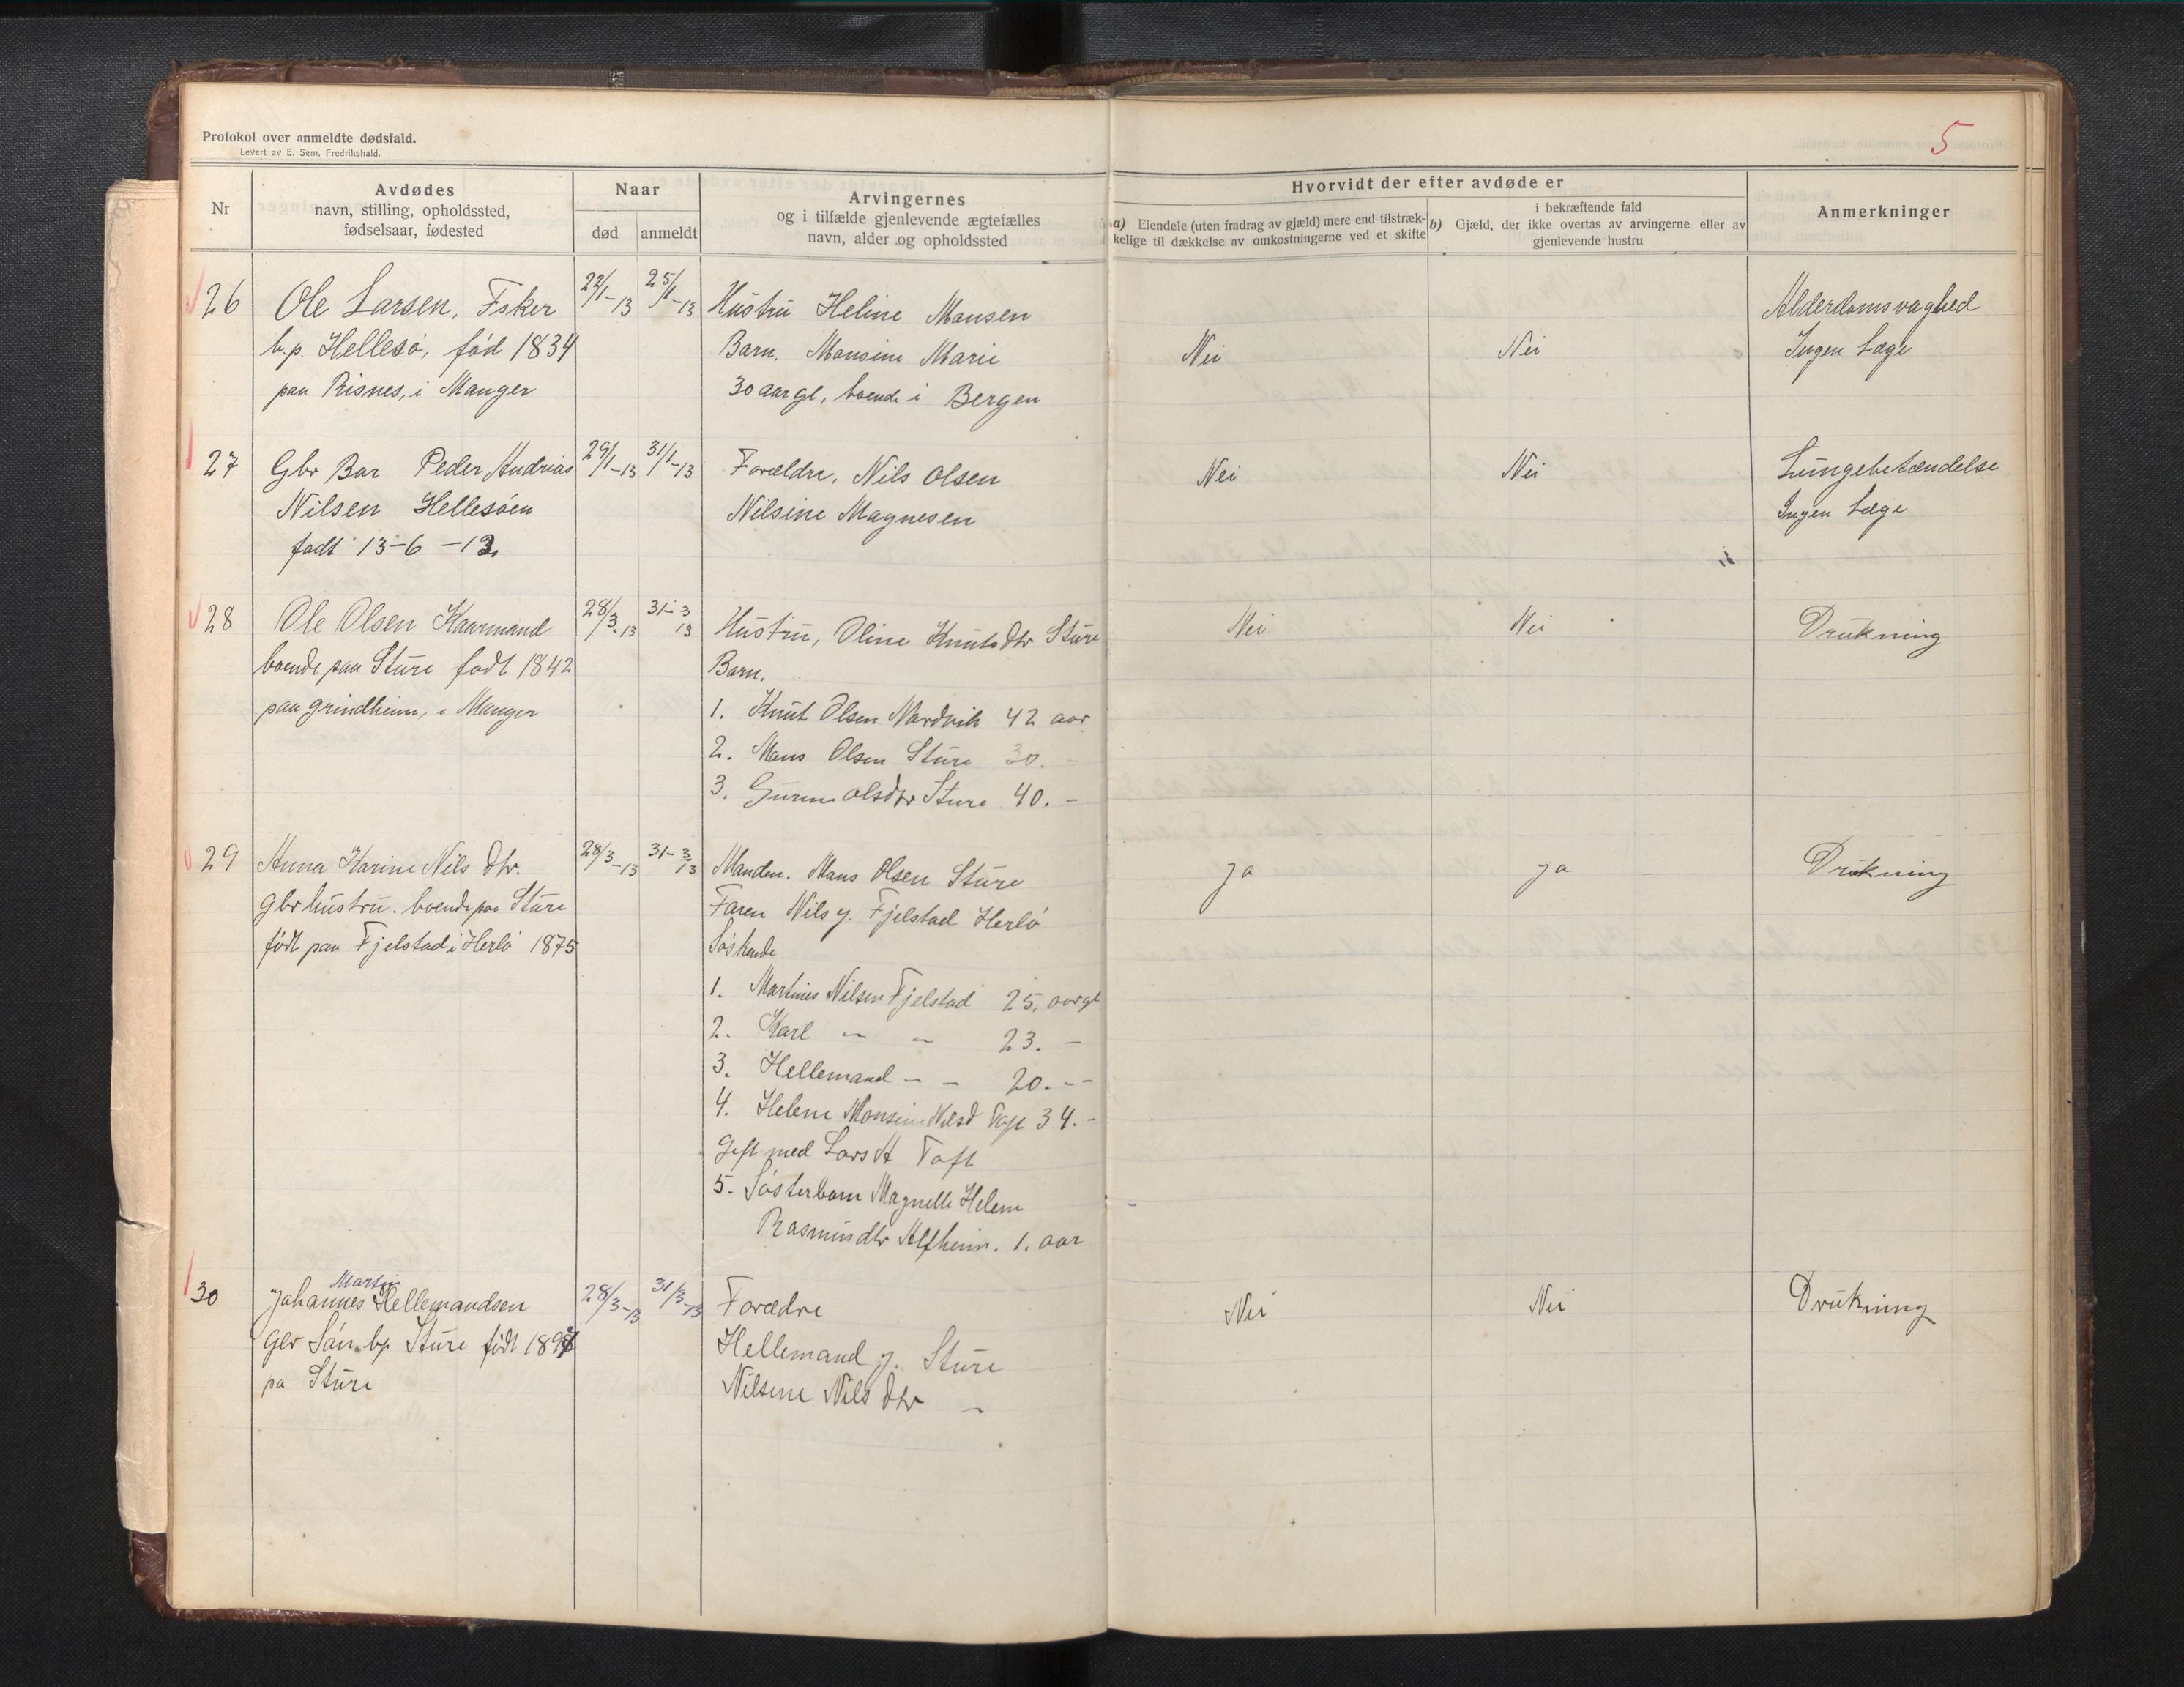 Protokol over anmeldte dødsfald.
Levert av E. Sem, Fredrikshald.
5
Nr
Avdødes
navn, stilling, opholdssted,
fødselsaar, fødested
Naar
død
anmeldt
Arvingernes
og i tilfælde gjenlevende ægtefælles
navn, alder og opholdssted
Hvorvidt der efter avdøde er
a) Eiendele (uten fradrag av gjæld) mere end tilstræk-
kelige til dækkelse av omkostningerne ved et skifte
i bekræftende fald
b) Gjæld, der ikke overtas av arvingerne eller av
gjenlevende hustru
Anmerkninger
26
Ole Larsen, Fsker
b.p. Hellesö, fød 1834
paa Risnes, i Manger
22/1-13
25/1-13
Hustru Heline Monsen
Barn. Monsine Marie
30 aar gl, boende i Bergen
Nei
Nei
Alderdomsvaghed
Ingen Læge
27
Gbr Bar Peder Andreas
Nilsen Hellesöen
født 13-6-12
29/1-13
31/1-13
Forældre, Nils Olsen
Nilsine Magnesen
Nei
Nei
Lungebetændelse
Ingen Læge
28
Ole Olsen Kaarmand
boende paa Sture født 1842
paa Grindheim, i Manger
28/3-13
31-3 13
Hustru, Oline Knuts Dtr Sture
Barn.
1. Knut Olsen Nordvik 42 aar
2. Mans Olsen Sture 30. -
3. Olsdtr Sture 40. -
Nei
Nei
Drukning
29
Anna Karine Nils Dtr.
gbr hustru. boende paa Sture
født paa Fjelstad i Herlö 1875
28/3-13
31-3 13
Manden. Mans Olsen Sture
Faren Nils J. Fjelstad Herlö
Söskende
1. Martines Nilsen Fjelstad 25. aar gl
2. Karl " " 23. -
3. Hellemand " " 20. --
4. Helene Monsine Nilsd 34. -
Gift med Lars A Toft
5. Sösterbarn Magnelle Helene
Rasmusdtr Alfheim. 1. aar
Ja
Ja
Drukning
30
Martin
Johannes Hellemandsen
Sön b.p. Sture født
pa Sture
28/3-13
31/3-13
Forædre
Hellemand J. Sture
Nilsine Nils Dtr "
Nei
Nei
Drukning